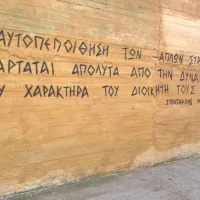 ΑΥΤΟΠΕΠΟΙΘΗΣΗ ΤΩΝ ΑΠΛΩΝ ΣΤΡ
ΑΡΤΑΤΑΙ ΑΠΟΛΥΤΑ ΑΠΟ ΤΗΝ ΔΥΝΑ
Υ ΧΑΡΑΚΤΗΡΑ ΤΟΥ ΔΙΟΙΚΗΤΗ ΤΟΥΣ